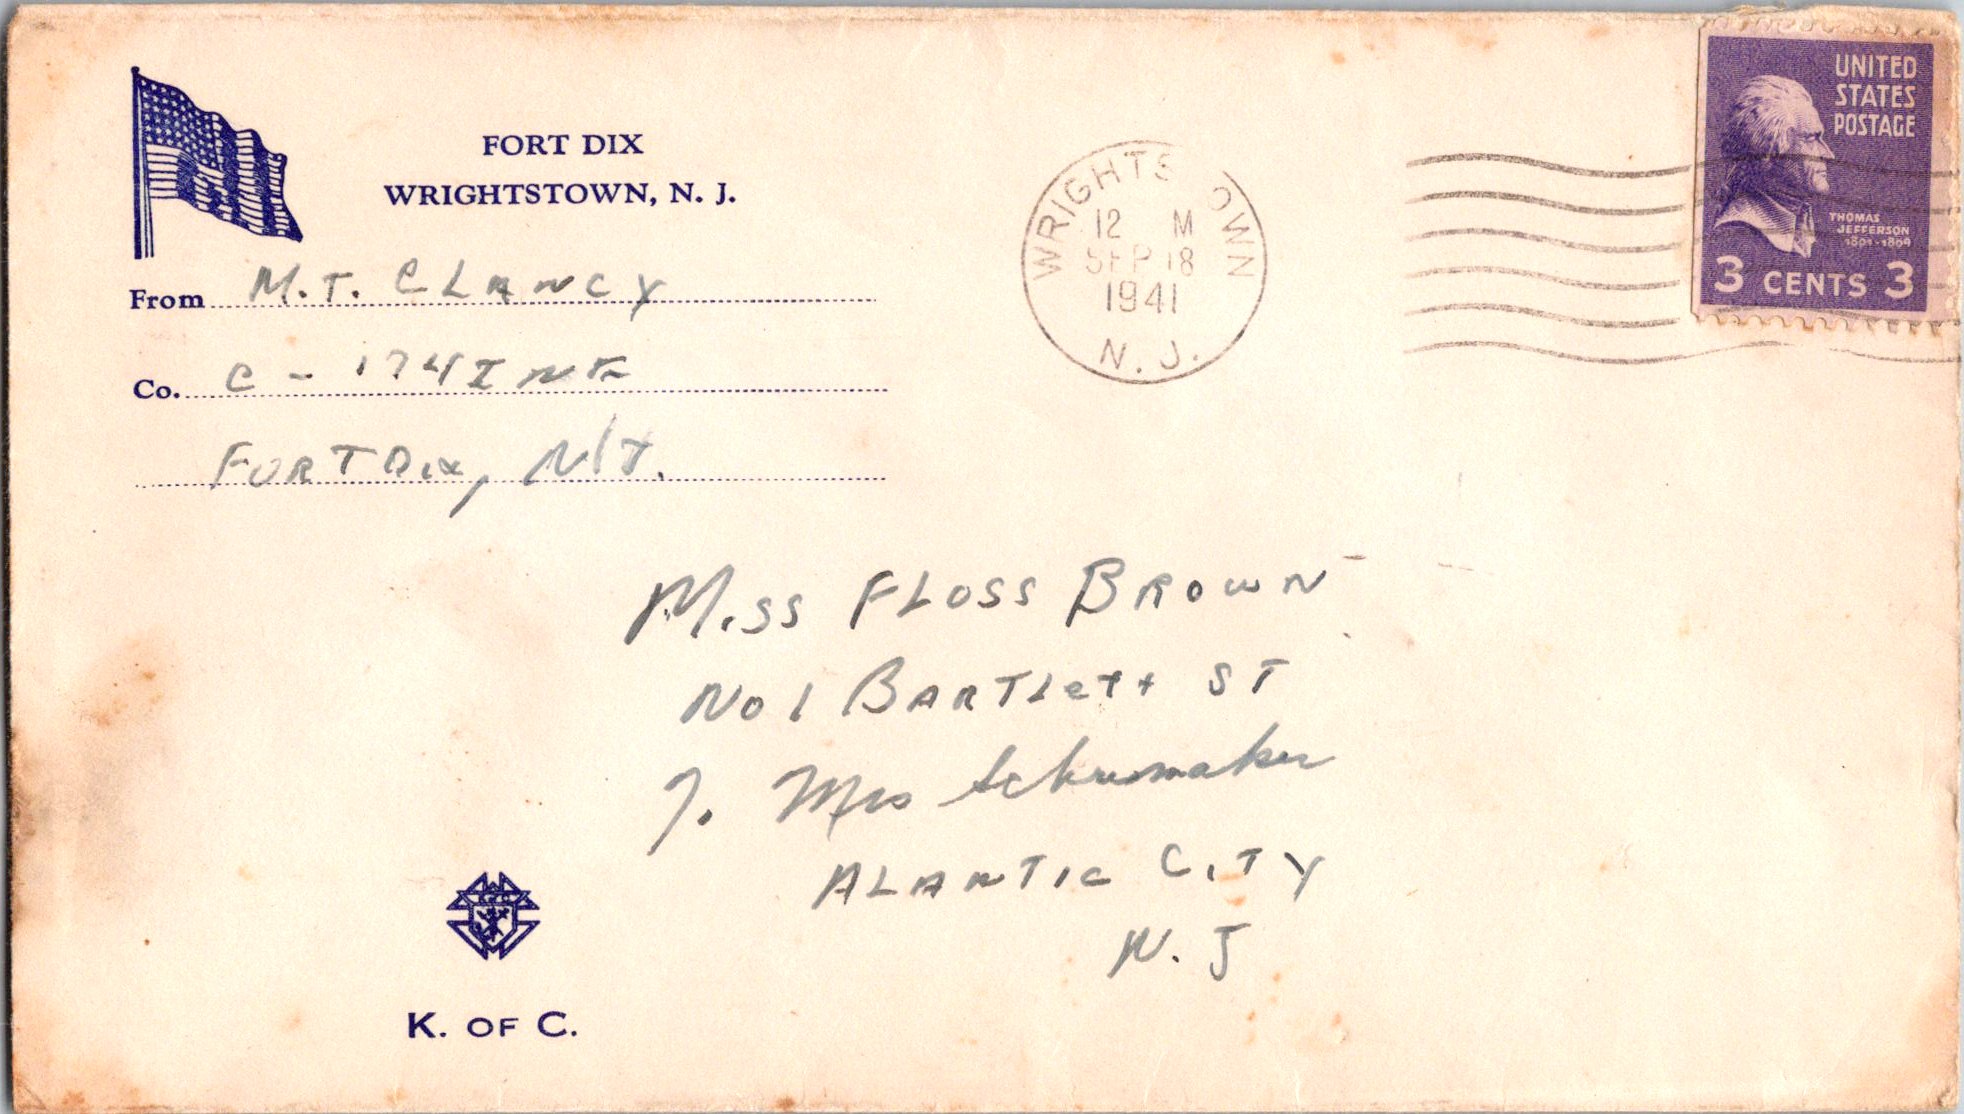 FORT DIX
WRIGHTSTOWN, N. J.
From M. T. CLANCY
Co. C - 174 INF
FORT DIX, N.J.
WRIGHTSTOWN
12 M
SEP 18
1941
N. J.
UNITED
STATES
POSTAGE
THOMAS
JEFFERSON
1801-1809
3 CENTS 3
MISS FLOSS BROWN
No 1 BARTLETT ST
Mrs Schumaker
ALANTIC CITY
N. J
K. OF C.